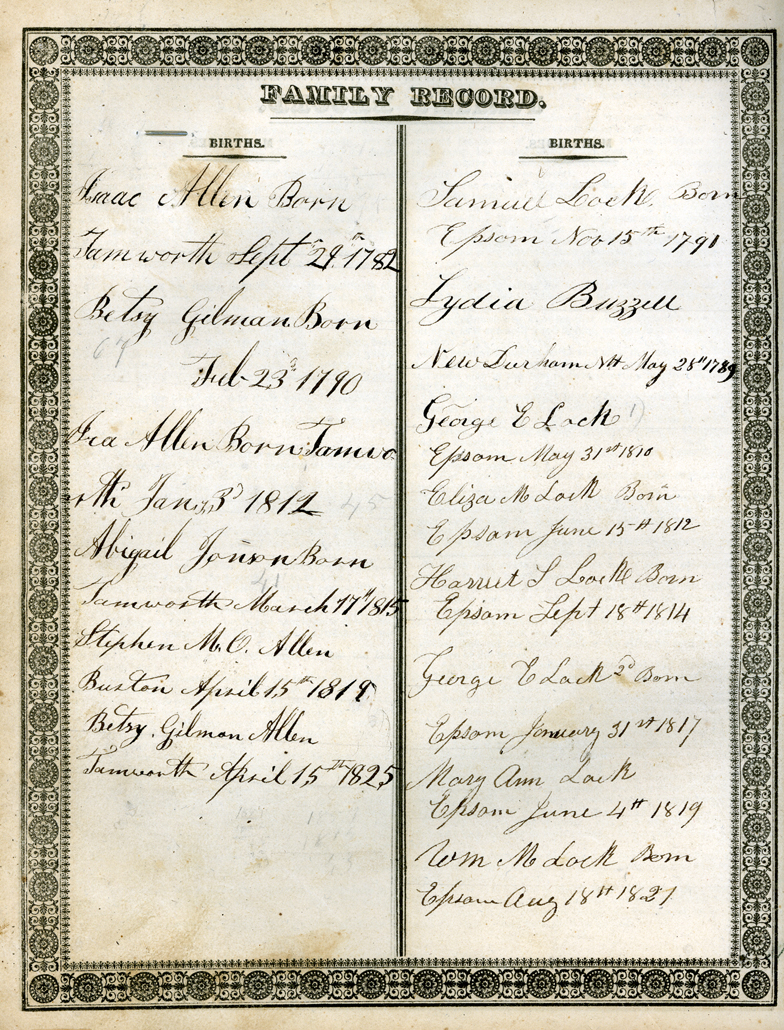 FAMILY RECORD.
BIRTHS.
Isaac Allen Born
Tamworth Sept 29th 1782
Betsy Gilman Born
67
Feb 23d 1790
Ira Allen Born Tamwo
rth Jan 3d 1812 45
Abigail Jonson Born
41
Tamworth March 17th 1815
Stephen M. O. Allen
Buxton April 15th 1819
Betsy Gilman Allen
Tamworth April 15th 1825
BIRTHS.
Samuel Lock Born
Epsom Nov 15th 1791
Lydia Buzzell
New Durham NH May 28th 1789
George E Lock 1)
Epsom May 31st 1810
Eliza M Lock Born
Epsom June 15th 1812
Harriet S Locke Born
Epsom Sept 18th 1814
George E Lock 2d Born
Epsom January 31st 1817
Mary Ann Lock
Epsom June 4th 1819
Wm M Lock Born
Epsom Aug 18th 1821